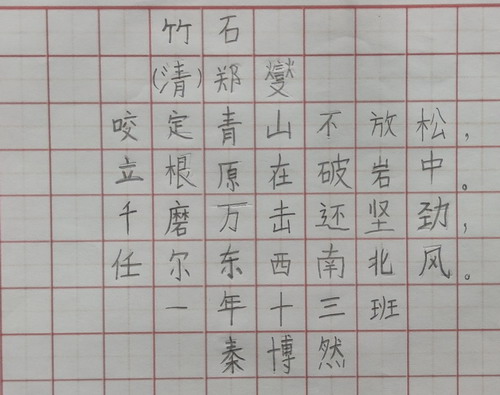 竹石
(清)郑燮
咬定青山不放松,
立根原在破岩中。
千磨万击还坚劲,
任尔东西南北风。
一年十三班
秦博然